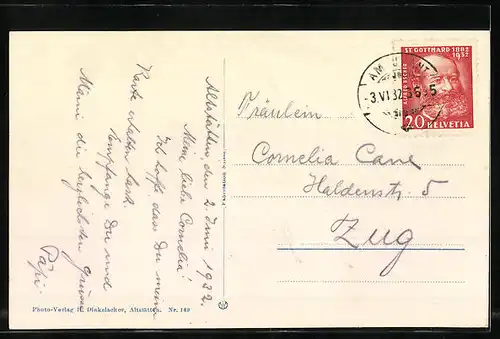 Altstätten, den 2. Juni 1932.
Meine liebe Cornelia!
Ich hoffe, dass Du meine
Karte erhalten hast.
Empfange Du und
Mämi die herzlichsten Grüsse
Päpi.
Photo-Verlag R. Dinkelacker, Altstätten. Nr. 149
ST. GOTTHARD 1882
1932
20 HELVETIA
3.VI.32
Fräulein
Cornelia Cane
Haldenstr. 5
Zug